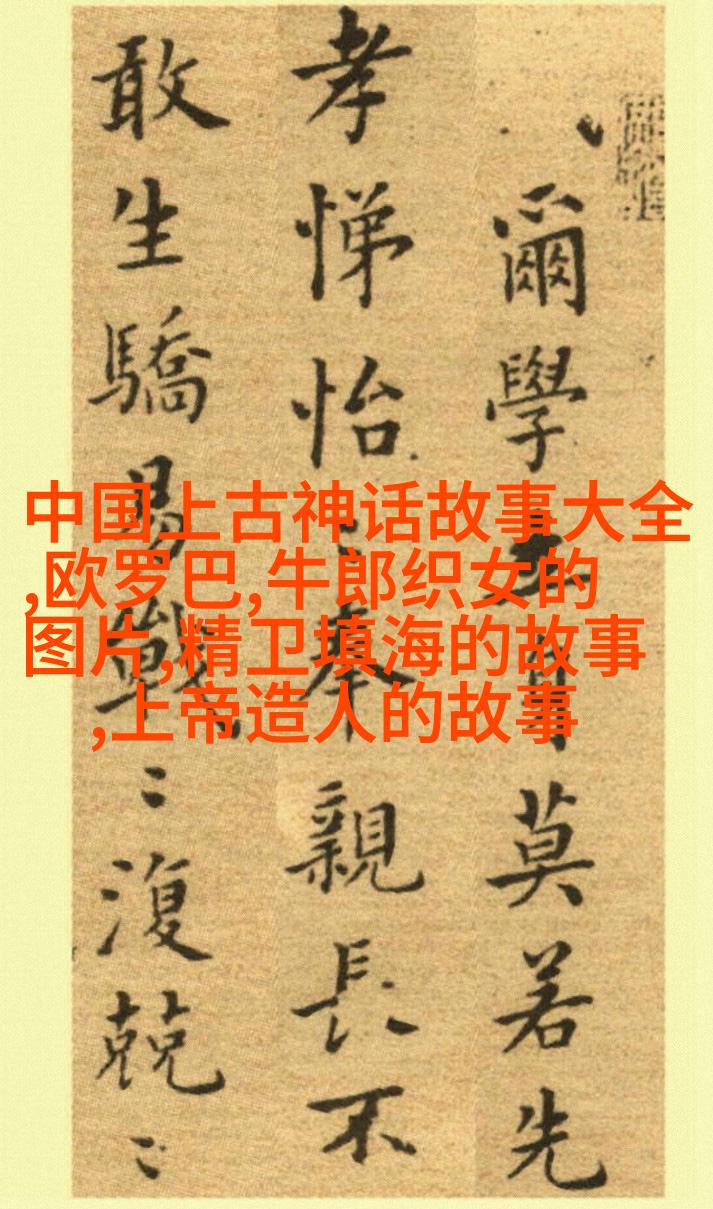 爾學立身莫若先
孝悌怡〻奉親長不
敢生驕易戰〻復兢〻
中国上古神话故事大全
,欧罗巴,牛郎织女的
图片,精卫填海的故事
,上帝造人的故事